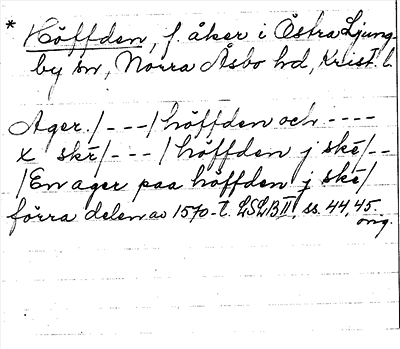 * Höffden, f. åker i Östra Ljung-
by sn, Norra Åsbo hd, Krist. l.
Ager. /---/ höffden och ----
x skē /---/ höffden j skē /--
/ En ager paa höffden j skē /
förra delen av 1570-t. LSLB II, ss. 44, 45.
orig.